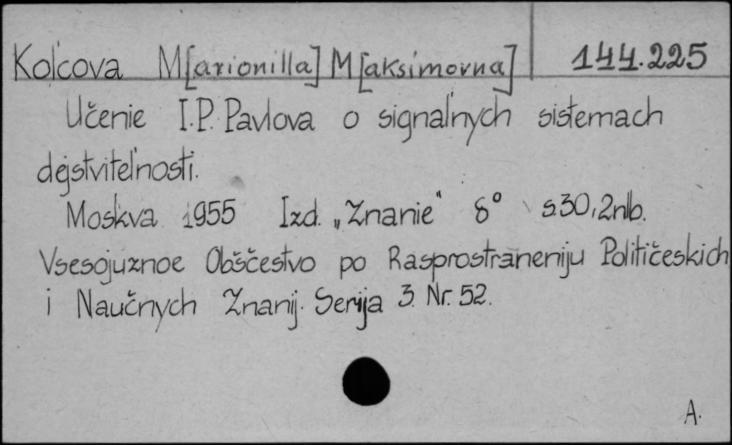 Kol'cova M[arionilla] M[aksimovna] 144.225
Učenie I.P. Pavlova o signal'nych sistemach
dejstvitel'nosti.
Moskva 1955 Izd. „Znanie" 8° s.30,2nlb.
Vsesojuznoe Obščestvo po Rasprostraneniju Političeskich
i Naučnych Znanij. Serija 3. Nr. 52.
A.